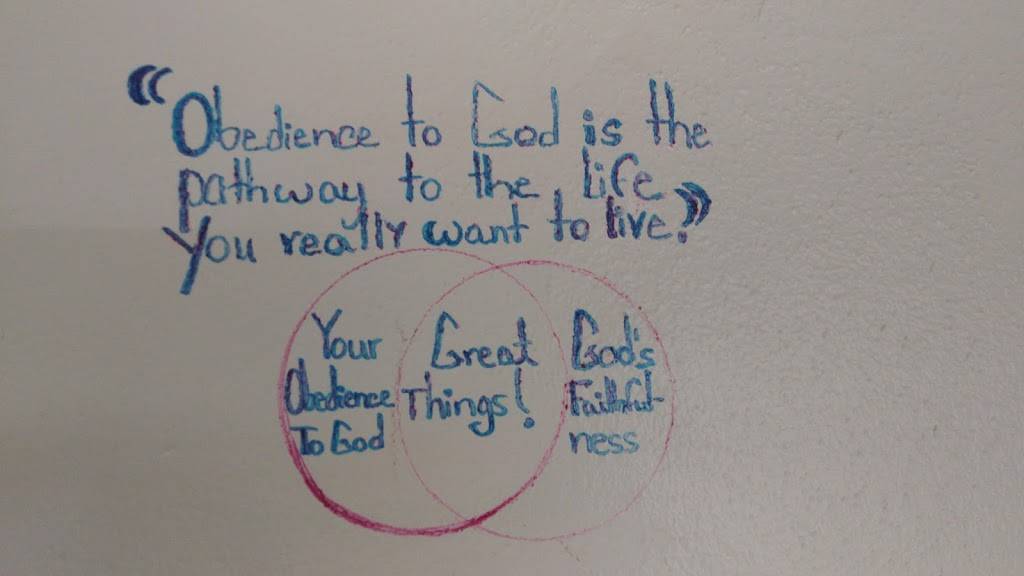 "Obedience to God is the
pathway to the life
You really want to live."
Your
Obedience
To God
Great
Things!
God's
Faithful-
ness